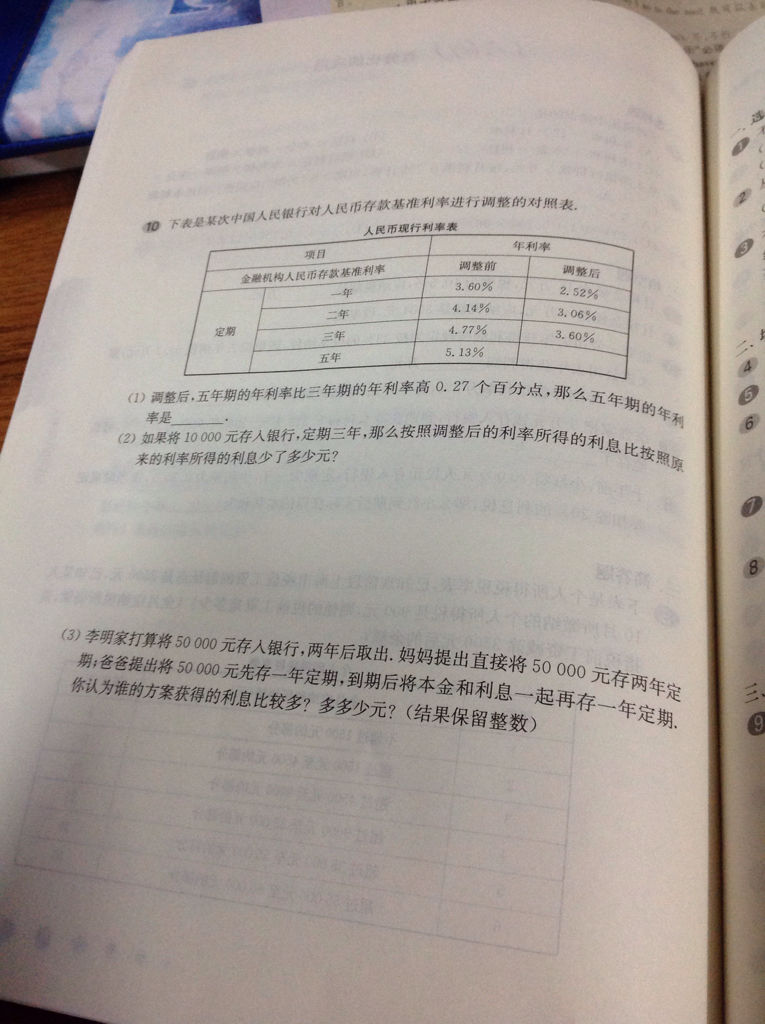 10 下表是某次中国人民银行对人民币存款基准利率进行调整的对照表.
人民币现行利率表
项目 年利率
金融机构人民币存款基准利率 调整前 调整后
定期 一年 3.60% 2.52%
二年 4.14% 3.06%
三年 4.77% 3.60%
五年 5.13%
(1) 调整后,五年期的年利率比三年期的年利率高 0.27 个百分点,那么五年期的年利
率是______.
(2) 如果将 10 000 元存入银行,定期三年,那么按照调整后的利率所得的利息比按照原
来的利率所得的利息少了多少元?
(3) 李明家打算将 50 000 元存入银行,两年后取出. 妈妈提出直接将 50 000 元存两年定
期;爸爸提出将 50 000 元先存一年定期,到期后将本金和利息一起再存一年定期.
你认为谁的方案获得的利息比较多? 多多少元? (结果保留整数)
一、选
1
2
3
二、
4
5
6
7
8
三、
9